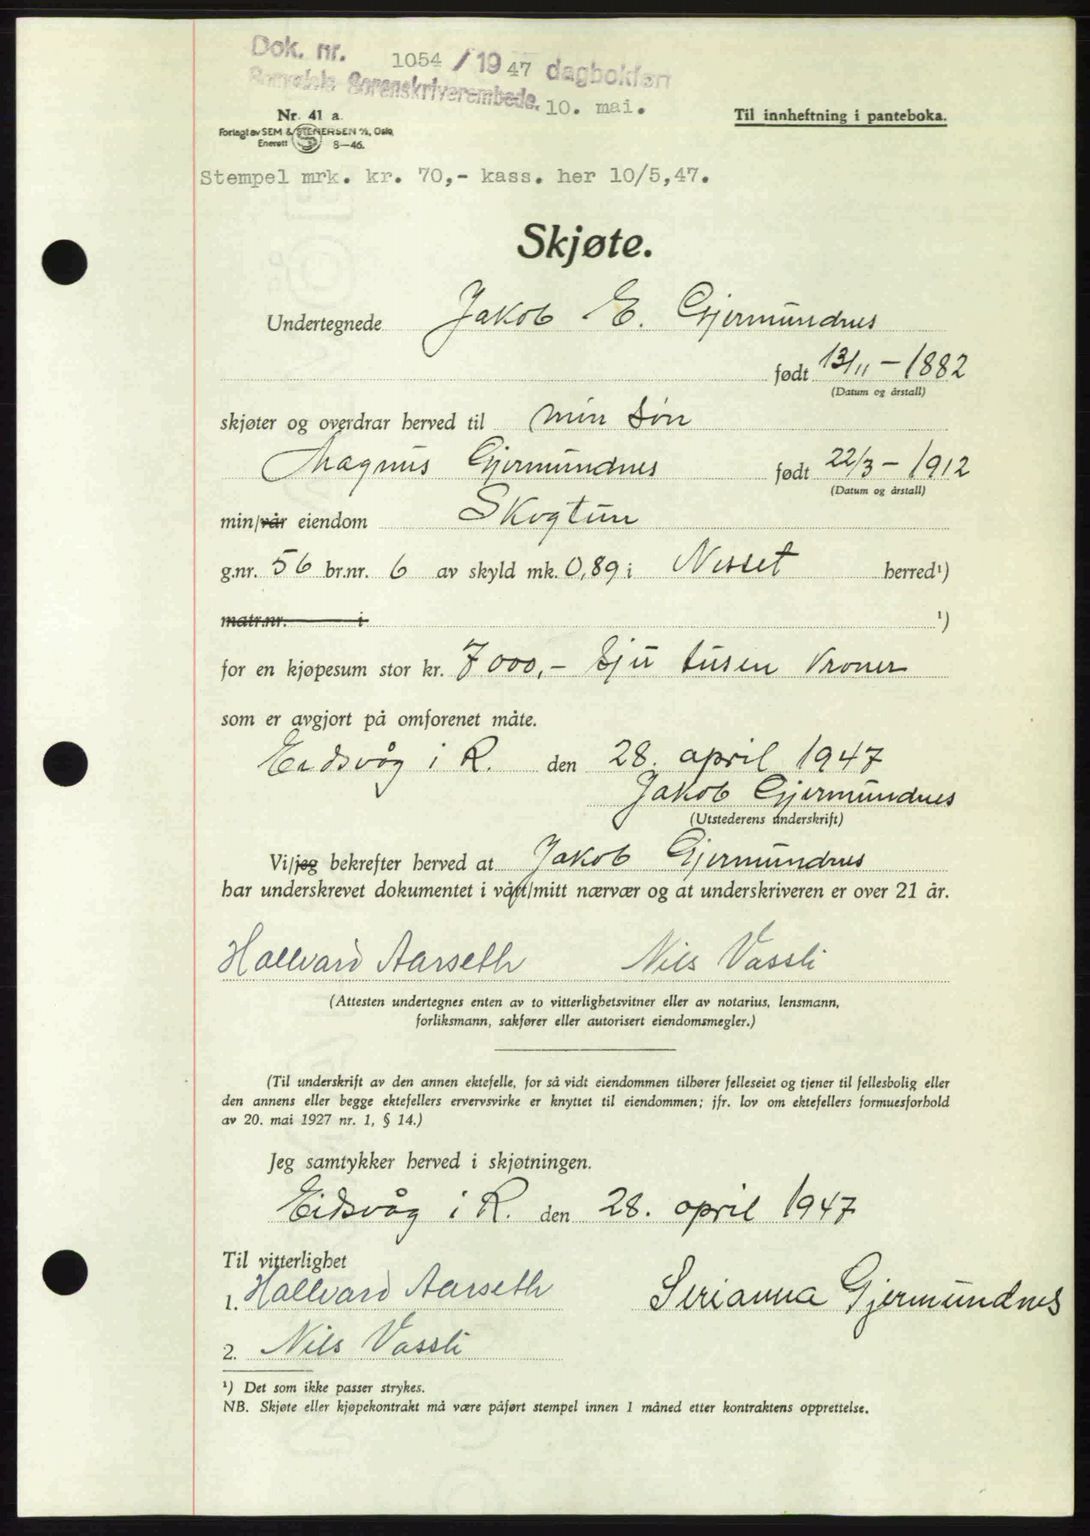 Dok. nr. 1054 / 19 47 dagbokført
Romsdals Sorenskriverembede. 10. mai.
Nr. 41 a.
Til innheftning i panteboka.
Forlagt av SEM & STENERSEN A/S, Oslo.
Enerett 8-46.
Stempel mrk. kr. 70,- kass. her 10/5,47.
Skjøte.
Undertegnede Jakob E. Gjermundnes
født 13/11 - 1882
(Datum og årstall)
skjøter og overdrar herved til min søn
Magnus Gjermundnes født 22/3 - 1912
(Datum og årstall)
min/vår eiendom Skogtun
g.nr. 56 br.nr. 6 av skyld mk. 0,89 i Nesset herred¹)
matr.nr. i ¹)
for en kjøpesum stor kr. 7000,- Sju tusen kroner
som er avgjort på omforenet måte.
Eidsvåg i R. den 28. april 1947
Jakob Gjermundnes
(Utstederens underskrift)
Vi/jeg bekrefter herved at Jakob Gjermundnes
har underskrevet dokumentet i vårt/mitt nærvær og at underskriveren er over 21 år.
Hallvard Aarseth Nils Vassli
(Attesten undertegnes enten av to vitterlighetsvitner eller av notarius, lensmann,
forliksmann, sakfører eller autorisert eiendomsmegler.)
(Til underskrift av den annen ektefelle, for så vidt eiendommen tilhører felleseiet og tjener til fellesbolig eller
den annens eller begge ektefellers ervervsvirke er knyttet til eiendommen; jfr. lov om ektefellers formuesforhold
av 20. mai 1927 nr. 1, § 14.)
Jeg samtykker herved i skjøtningen.
Eidsvåg i R. den 28. april 1947
Til vitterlighet
1. Hallvard Aarseth Serianna Gjermundnes
2. Nils Vassli
¹) Det som ikke passer strykes.
NB. Skjøte eller kjøpekontrakt må være påført stempel innen 1 måned etter kontraktens opprettelse.